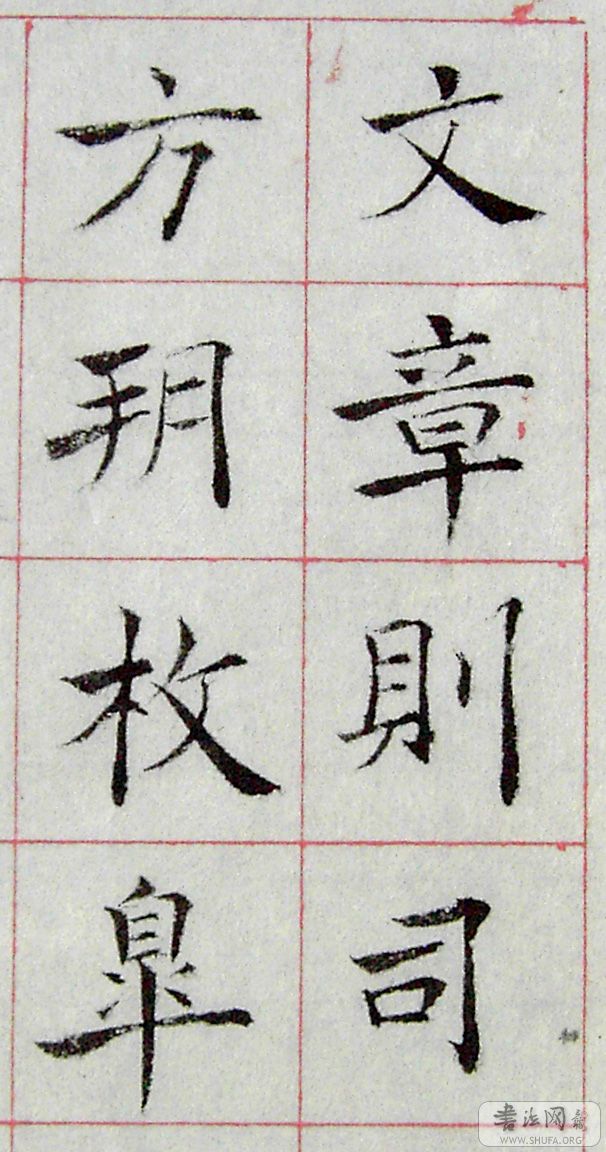 文章則司
方朔枚皋
書法网
WWW.SHUFA.ORG